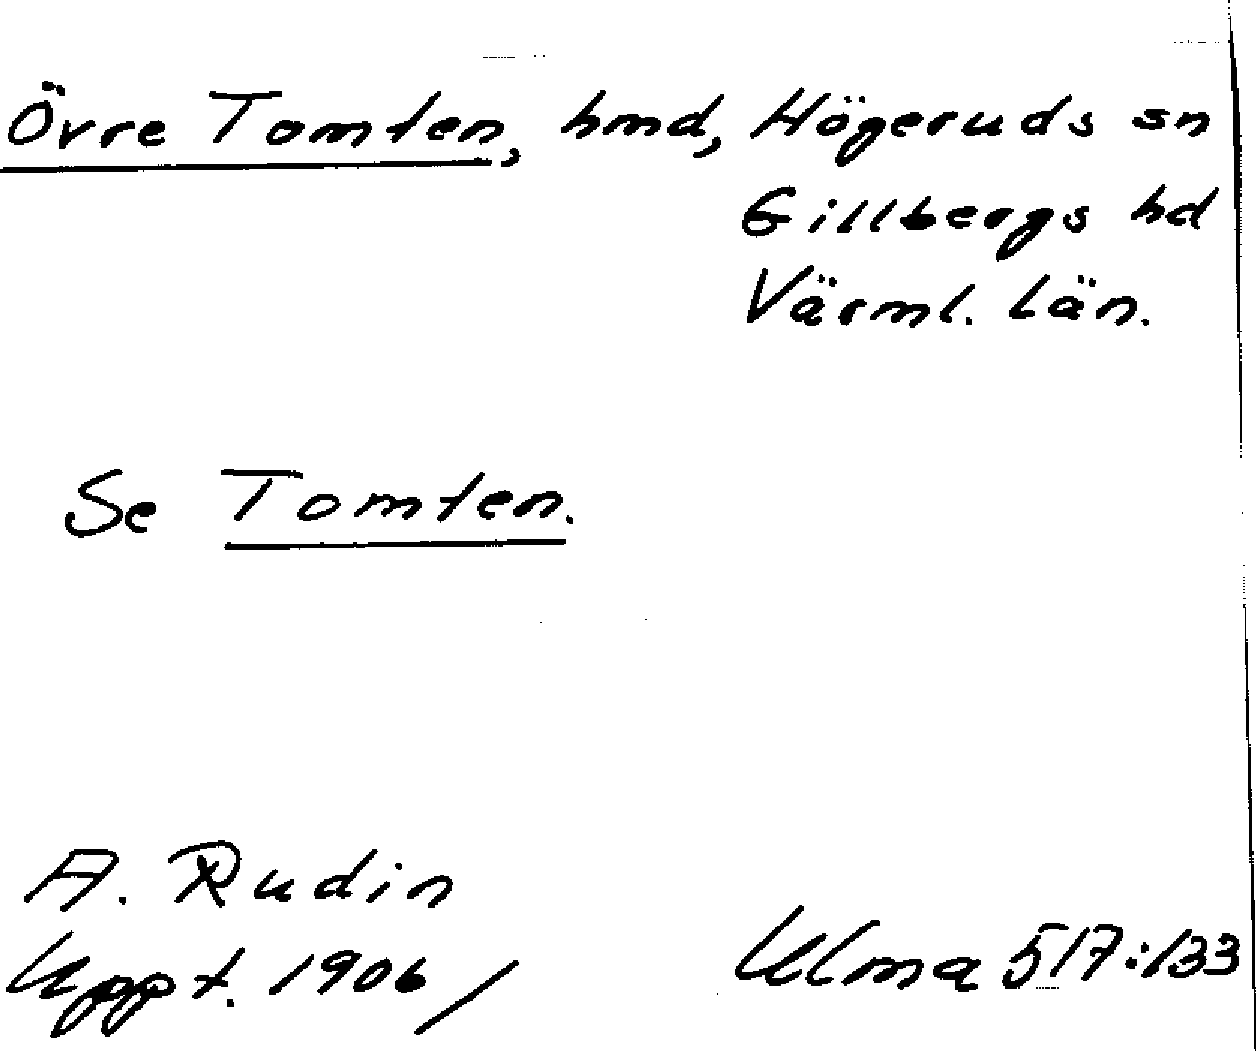 Övre Tomten, hmd, Högeruds sn
Gillbergs hd
Värml. län.
Se Tomten.
A. Rudin
Uppt. 1906/
Ulma 517:133